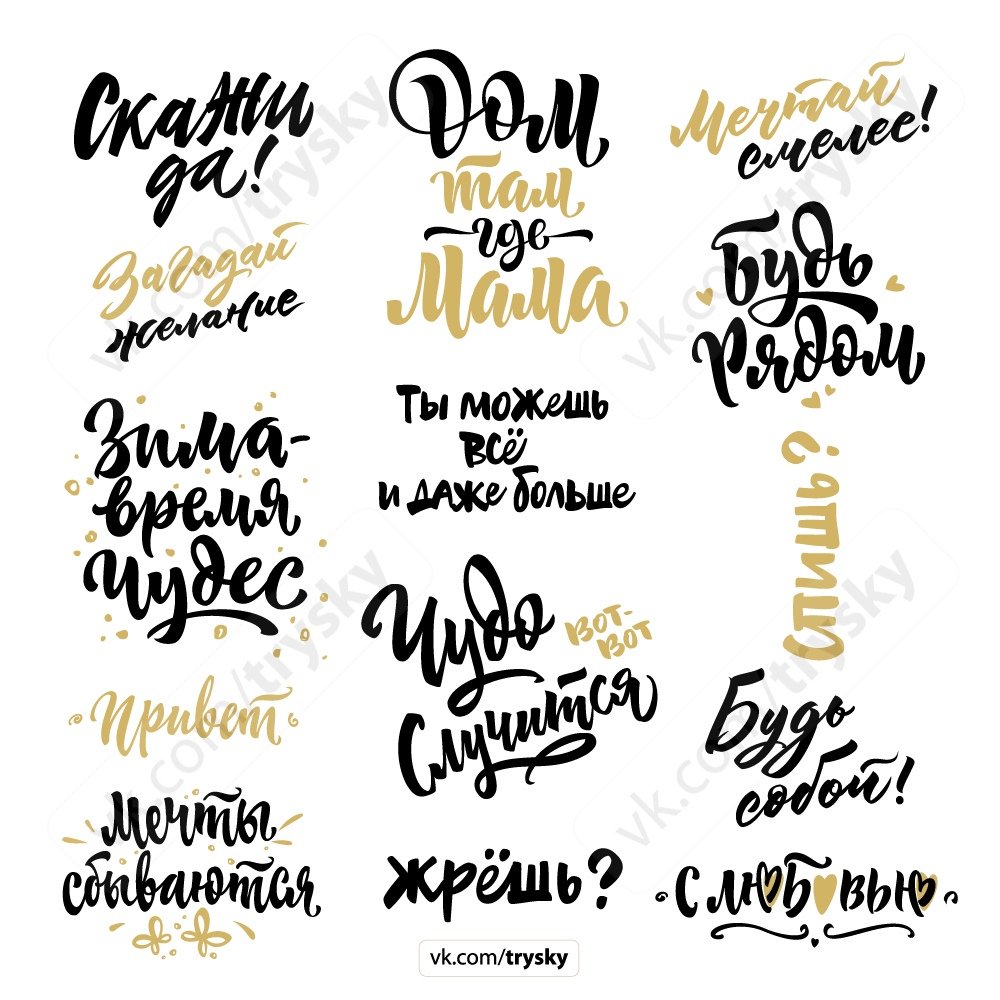 Скажи
да!
Загадай
желание
Зима-
время
чудес
Привет
Мечты
сбываются
Дом
там
где
Мама
Ты можешь
всё
и даже больше
Чудо
вот-
вот
Случится
жрёшь?
Мечтай
смелее!
Будь
Рядом
спишь?
Будь
собой!
С любовью
vk.com/trysky
vk.com/trysky
vk.com/trysky
vk.com/trysky
vk.com/trysky